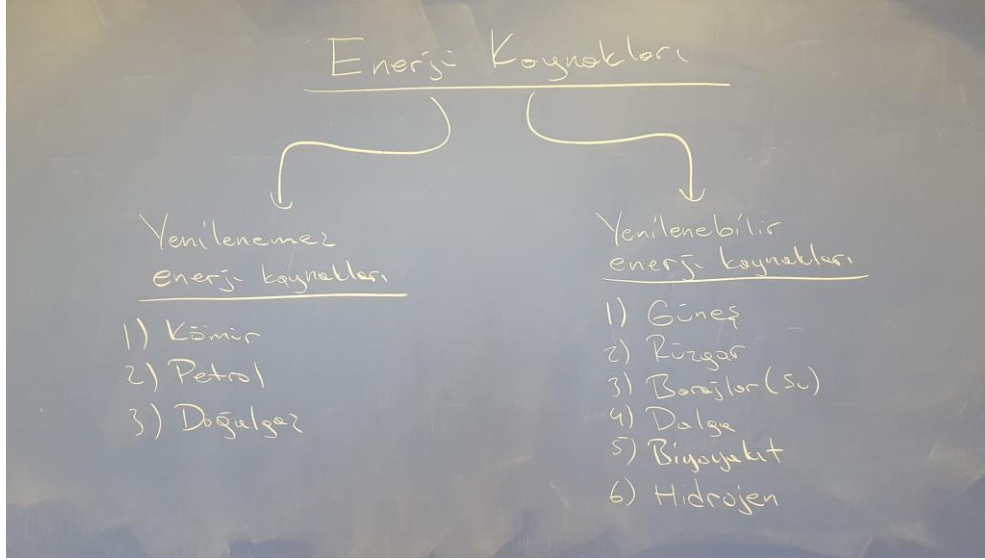 Enerji Kaynakları
Yenilenemez
enerji kaynakları
1) Kömür
2) Petrol
3) Doğalgaz
Yenilenebilir
enerji kaynakları
1) Güneş
2) Rüzgar
3) Barajlar (su)
4) Dalga
5) Biyoyakıt
6) Hidrojen